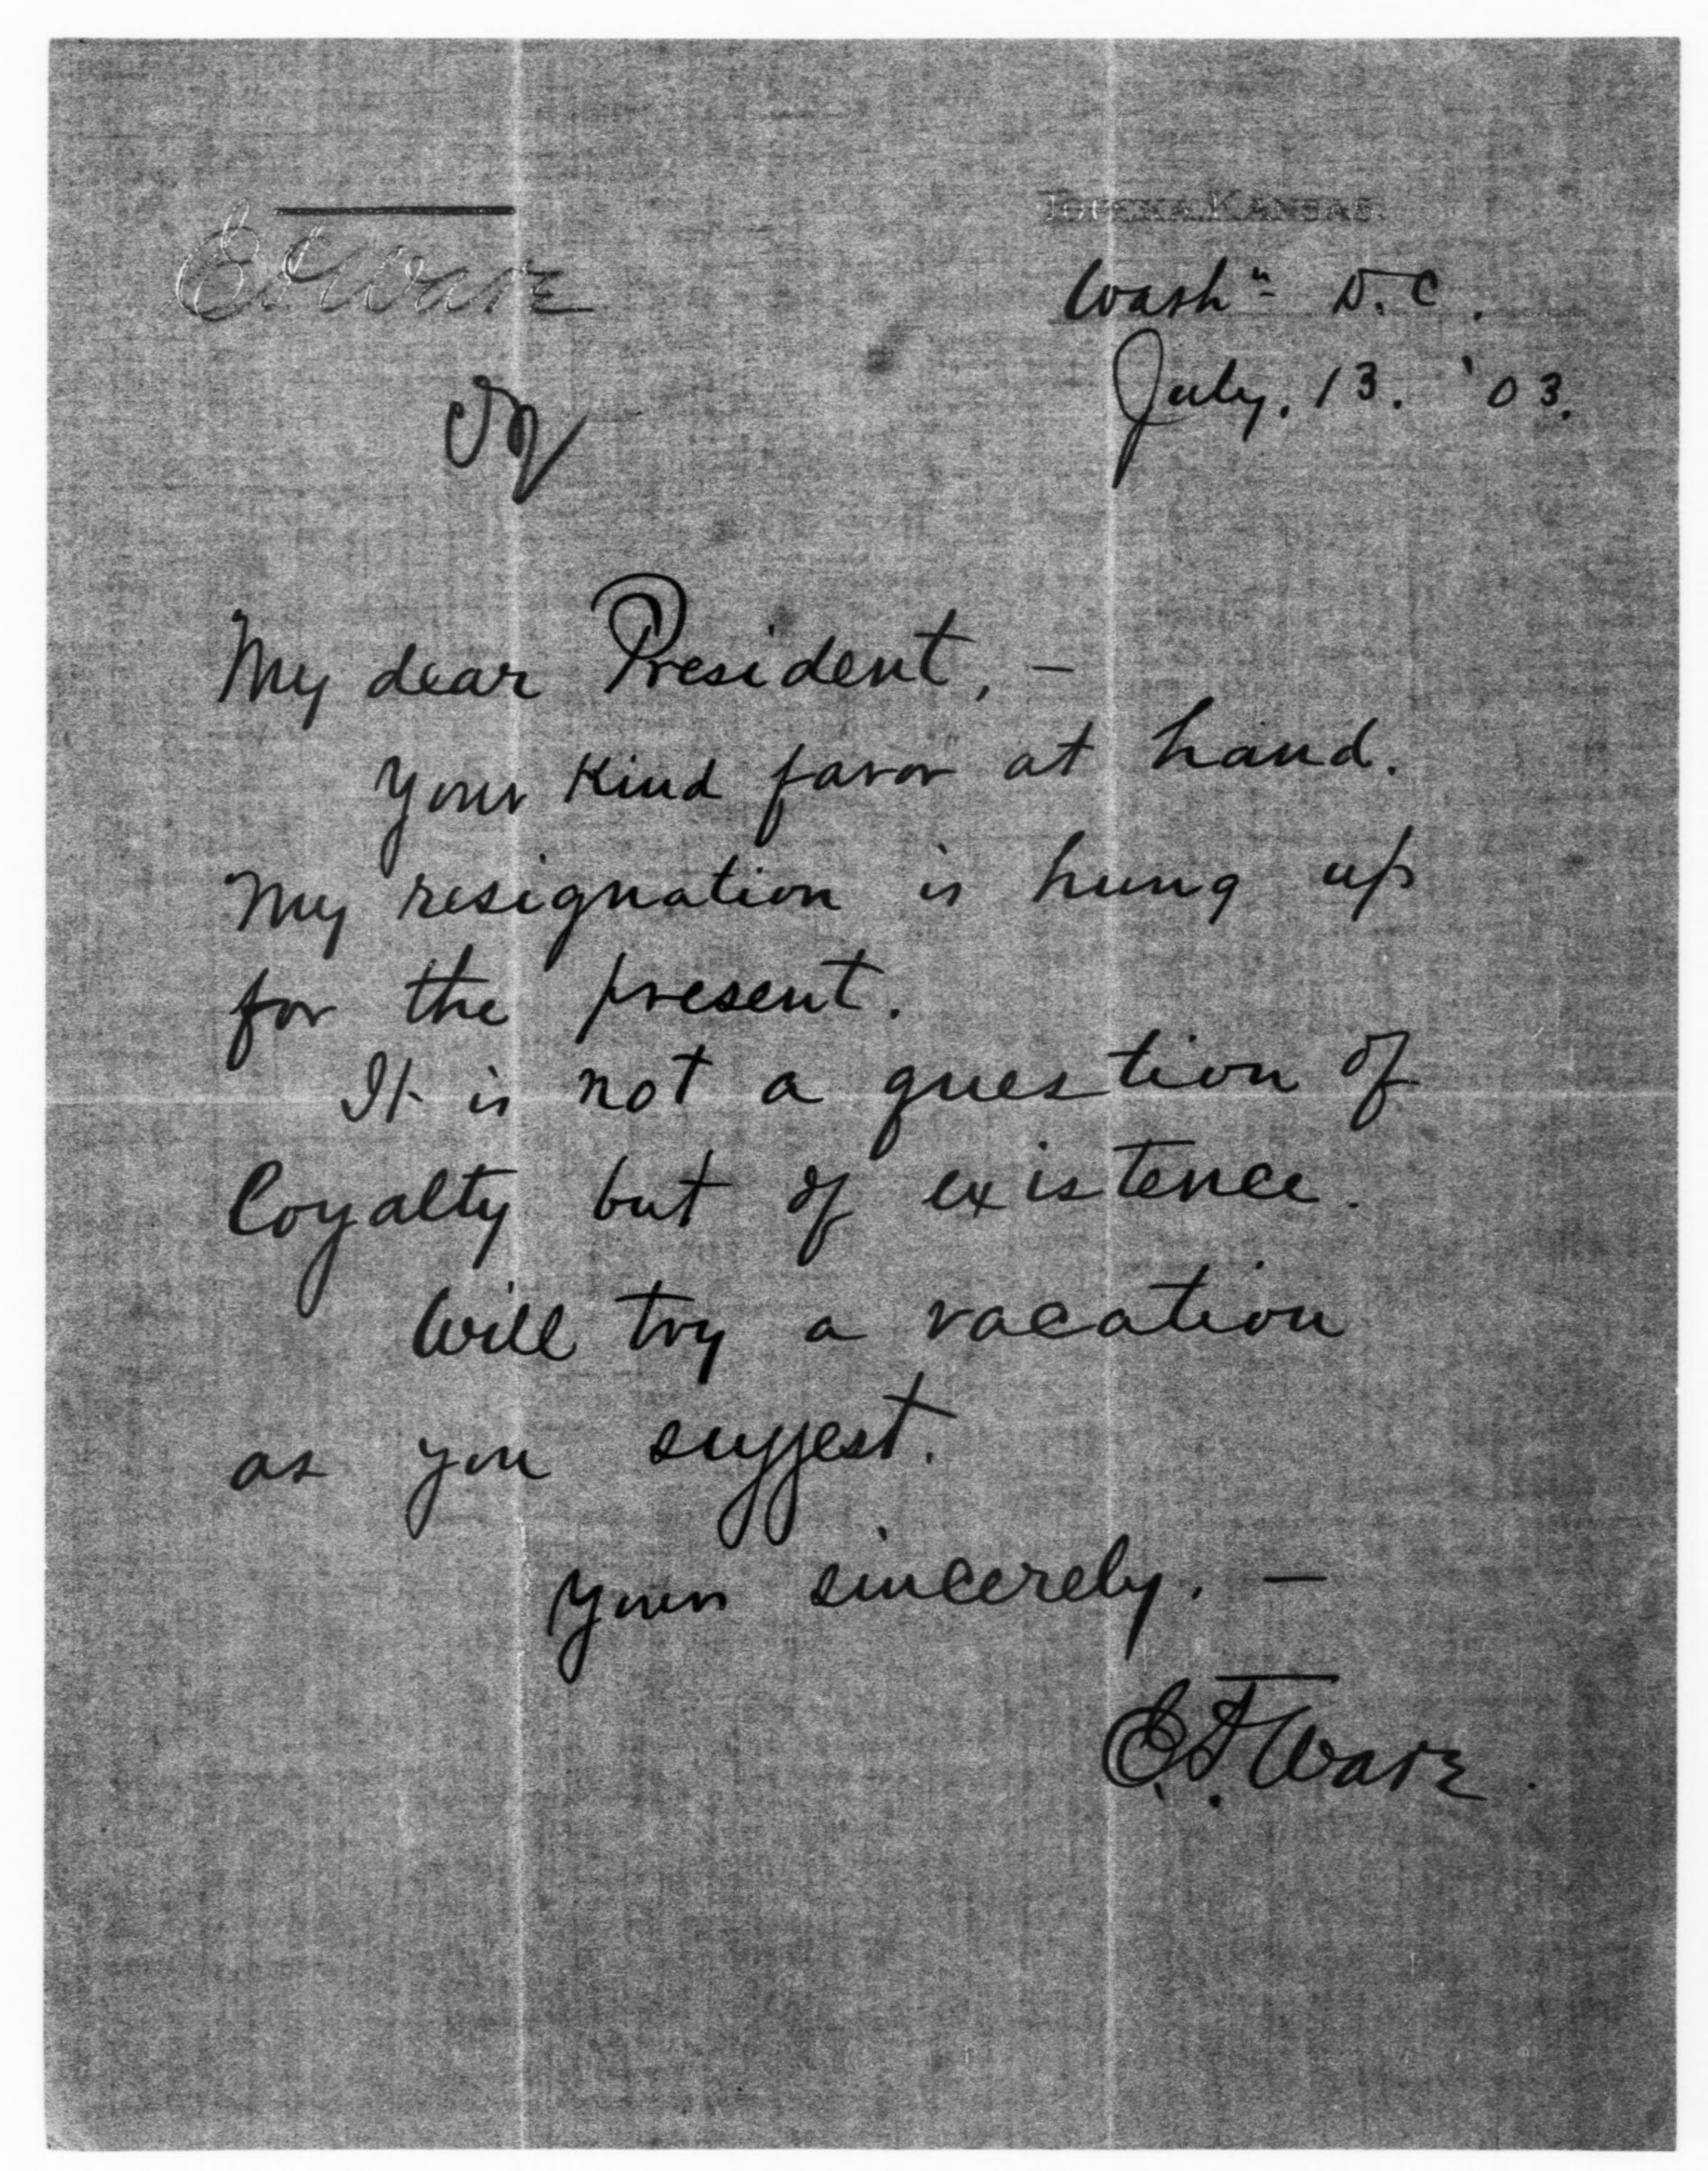 E F Ware
TOPEKA, KANSAS.
Washⁿ D.C.
July. 13. '03.
My dear President, —
Your kind favor at hand.
My resignation is hung up
for the present.
It is not a question of
loyalty but of existence.
Will try a vacation
as you suggest.
Yours sincerely. —
E. F. Ware.